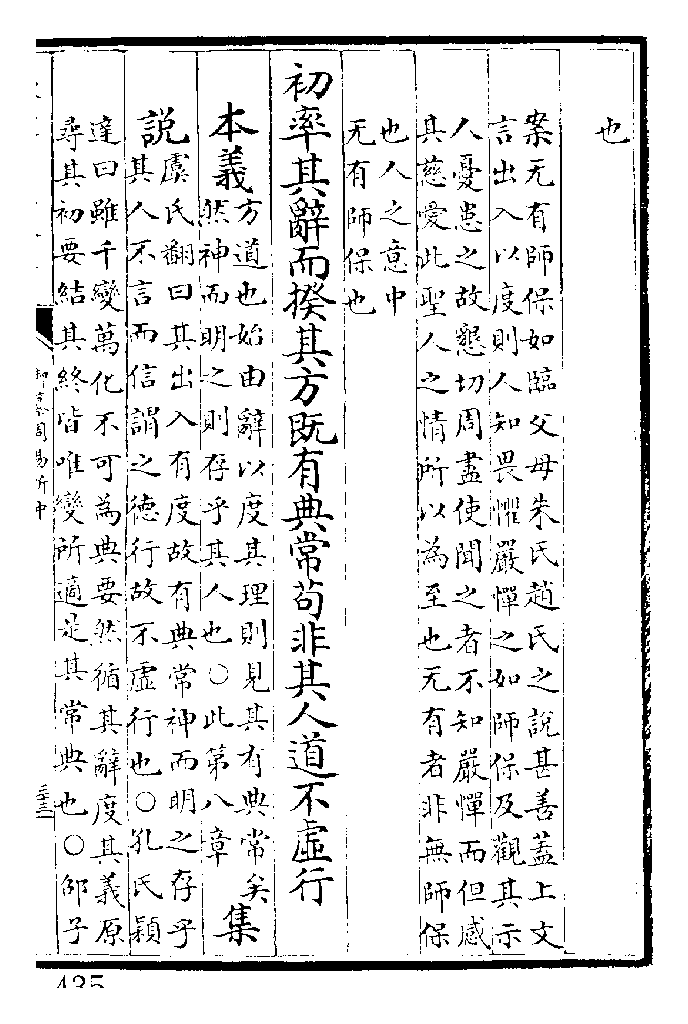 也
案无有師保如臨父母朱氏趙氏之說甚善蓋上文
言出入以度則人知畏懼嚴憚之如師保及觀其示
人憂患之故懇切周盡使聞之者不知嚴憚而但感
其慈愛此聖人之情所以為至也无有者非無師保
也人之意中
无有師保也
初率其辭而揆其方既有典常苟非其人道不虛行
本義
方道也始由辭以度其理則見其有典常矣
然神而明之則存乎其人也○此第八章
集
說
虞氏翻曰其出入有度故有典常神而明之存乎
其人不言而信謂之德行故不虛行也○孔氏穎
達曰雖千變萬化不可為典要然循其辭度其義原
尋其初要結其終皆唯變所適是其常典也○邵子
御纂周易折中
435